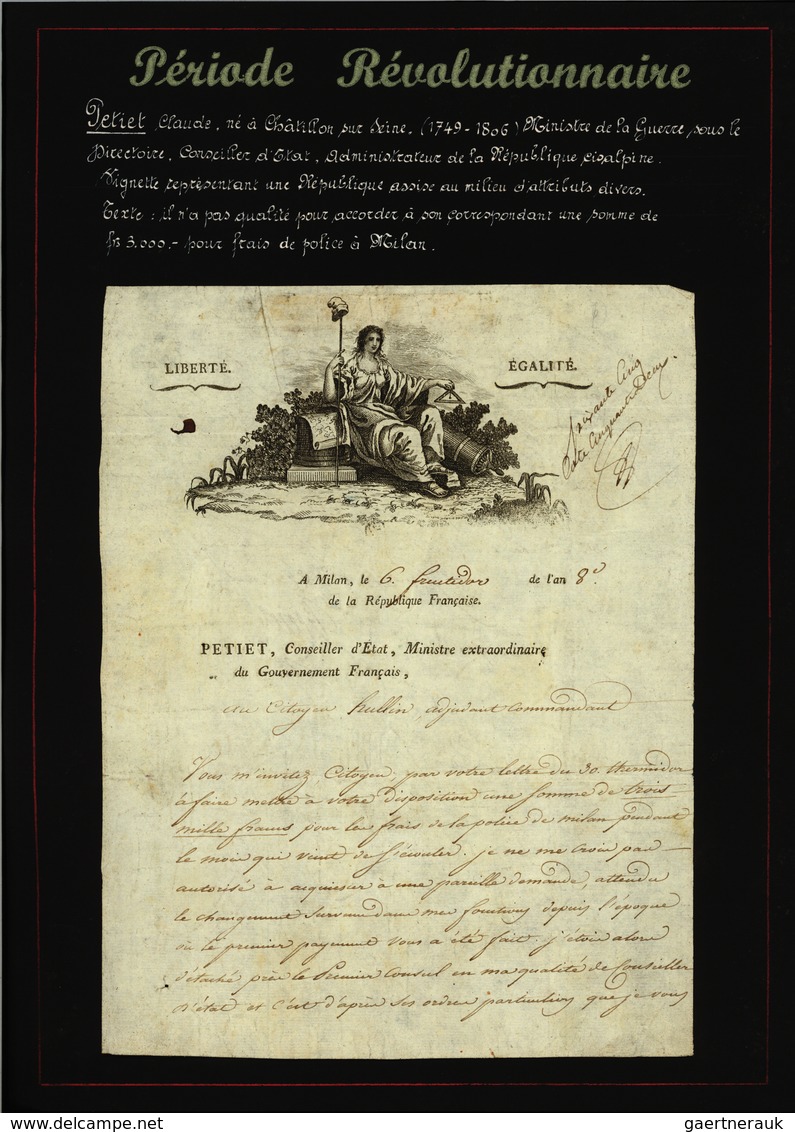 Période Révolutionnaire
Petiet Claude, né à Châtillon sur Seine. (1749-1806) Ministre de la Guerre sous le
Directoire, Conseiller d'Etat, Administrateur de la République cisalpine.
Vignette représentant une République assise au milieu d'attributs divers.
Texte : il n'a pas qualité pour accorder à son correspondant une somme de
frs 3.000.- pour frais de police à Milan.
LIBERTÉ.
ÉGALITÉ.
Soixante Cinq
Cote Cinquante Deux.
A Milan, le 6. fructidor de l'an 8e.
de la République Française.
PETIET, Conseiller d'État, Ministre extraordinaire
du Gouvernement Français,
au Citoyen hullin, adjudant Commandant
Vous m'invitez, Citoyen, par votre lettre du 30. thermidor
à faire mettre à votre disposition une somme de trois
mille francs pour les frais de la police de milan pendant
le mois qui vient de s'écouler. je ne me crois pas
autorisé à acquiescer à une pareille demande, attendu
le changement survenu dans mes fonctions depuis l'époque
où le premier payement vous a été fait. j'étois alors
détaché près le Premier Consul en ma qualité de Conseiller
d'état et c'est d'après ses ordres particuliers que je vous
delcampe.net
gaertnerauk